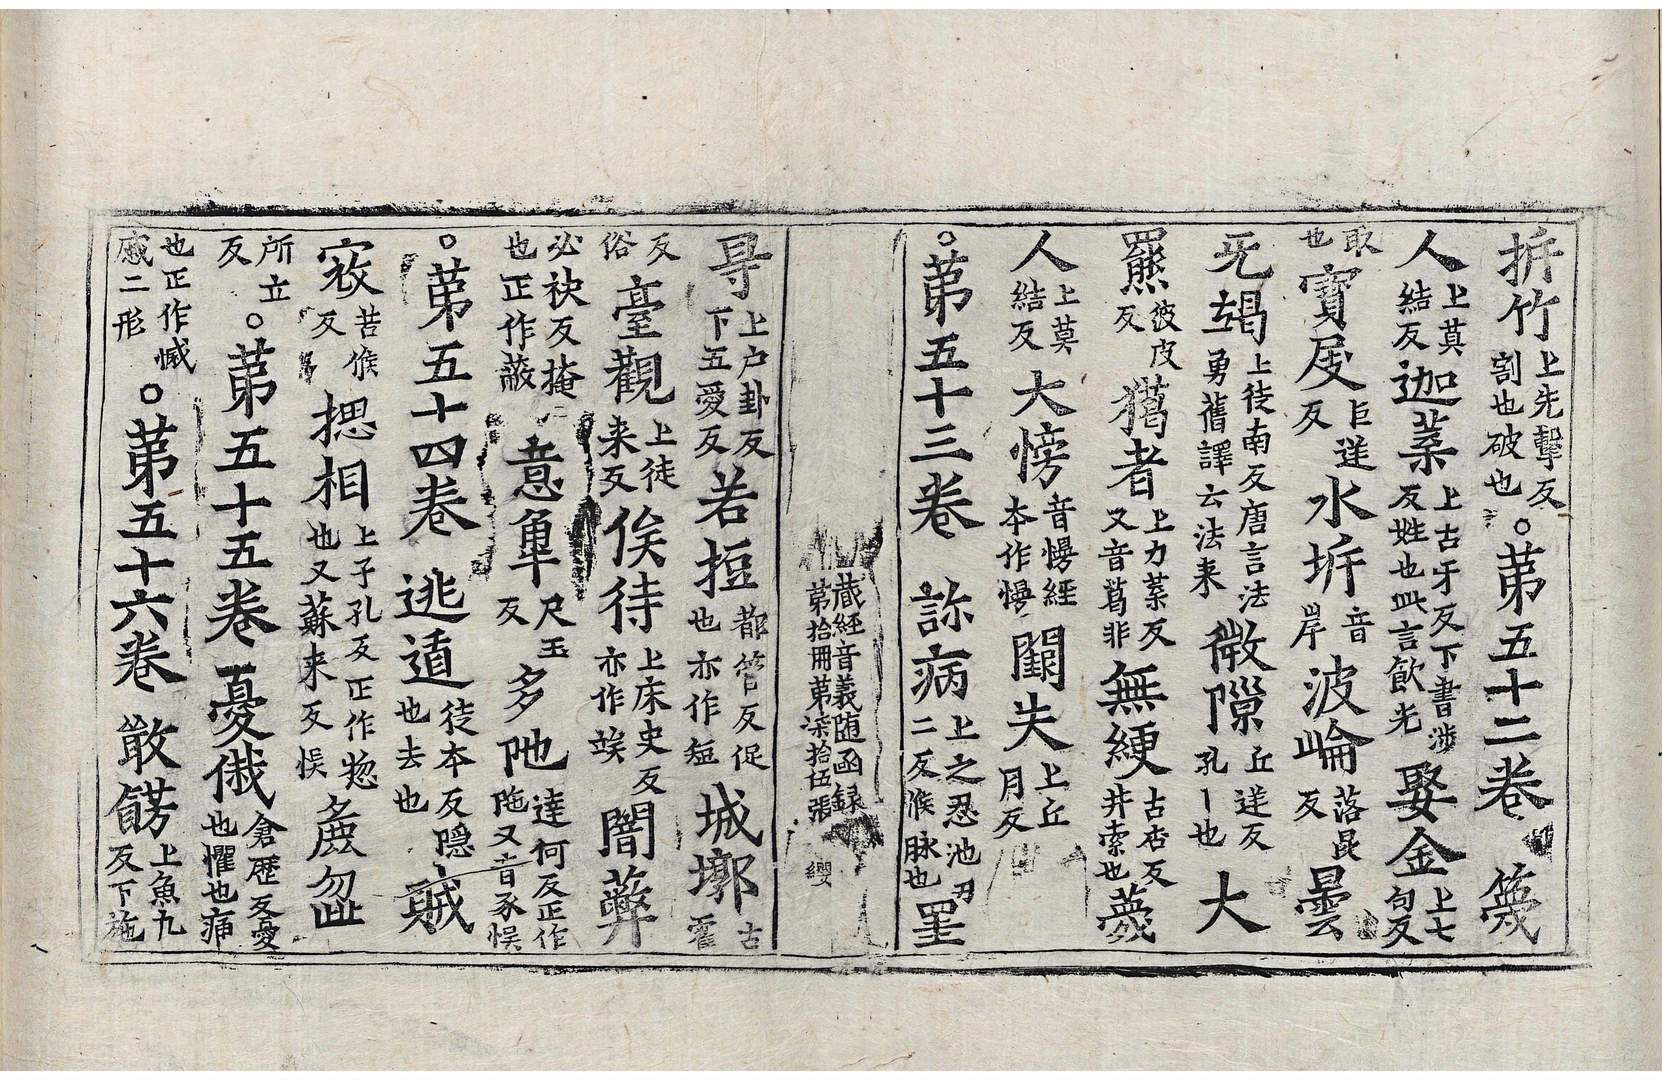 㭊竹上先擊反割也破也○苐五十二卷　篾
人上莫結反迦葉上古牙反下書涉反姓也此言飮光娶金上七句反
取也寳屐巨逆反水圻音岸波崘落昆反曇
无竭上徒南反唐言法勇舊譯云法来微隙丘逆反孔丨也大
羆彼皮反猲者上力葉反又音葛非無綆古杏反井索也薎
人上莫結反大愶音慢經本作慢闚失上丘月反
○苐五十三卷　診病上之忍池刃二反候脉也罣
蔵經音義随函録苐拾冊苐柒拾伍張　纓
㝵上户卦反下五愛反若𢭃都管反促也亦作短城墎古霍
反俗臺觀上徒来反俟待上床史反亦作竢闇蔽
必袂反掩也正作蔽意車尺玉反多阤達何反正作陁又音豕悮
○苐五十四卷　逃遁徒本反隠也去也賊
㓂苦候反揔相上子孔反正作惣也又蘇来反悮麁忽
所立反○苐五十五卷憂倎倉歷反憂也懼也痛
也正作慽慼二形○苐五十六卷　敢餝上魚九反下施